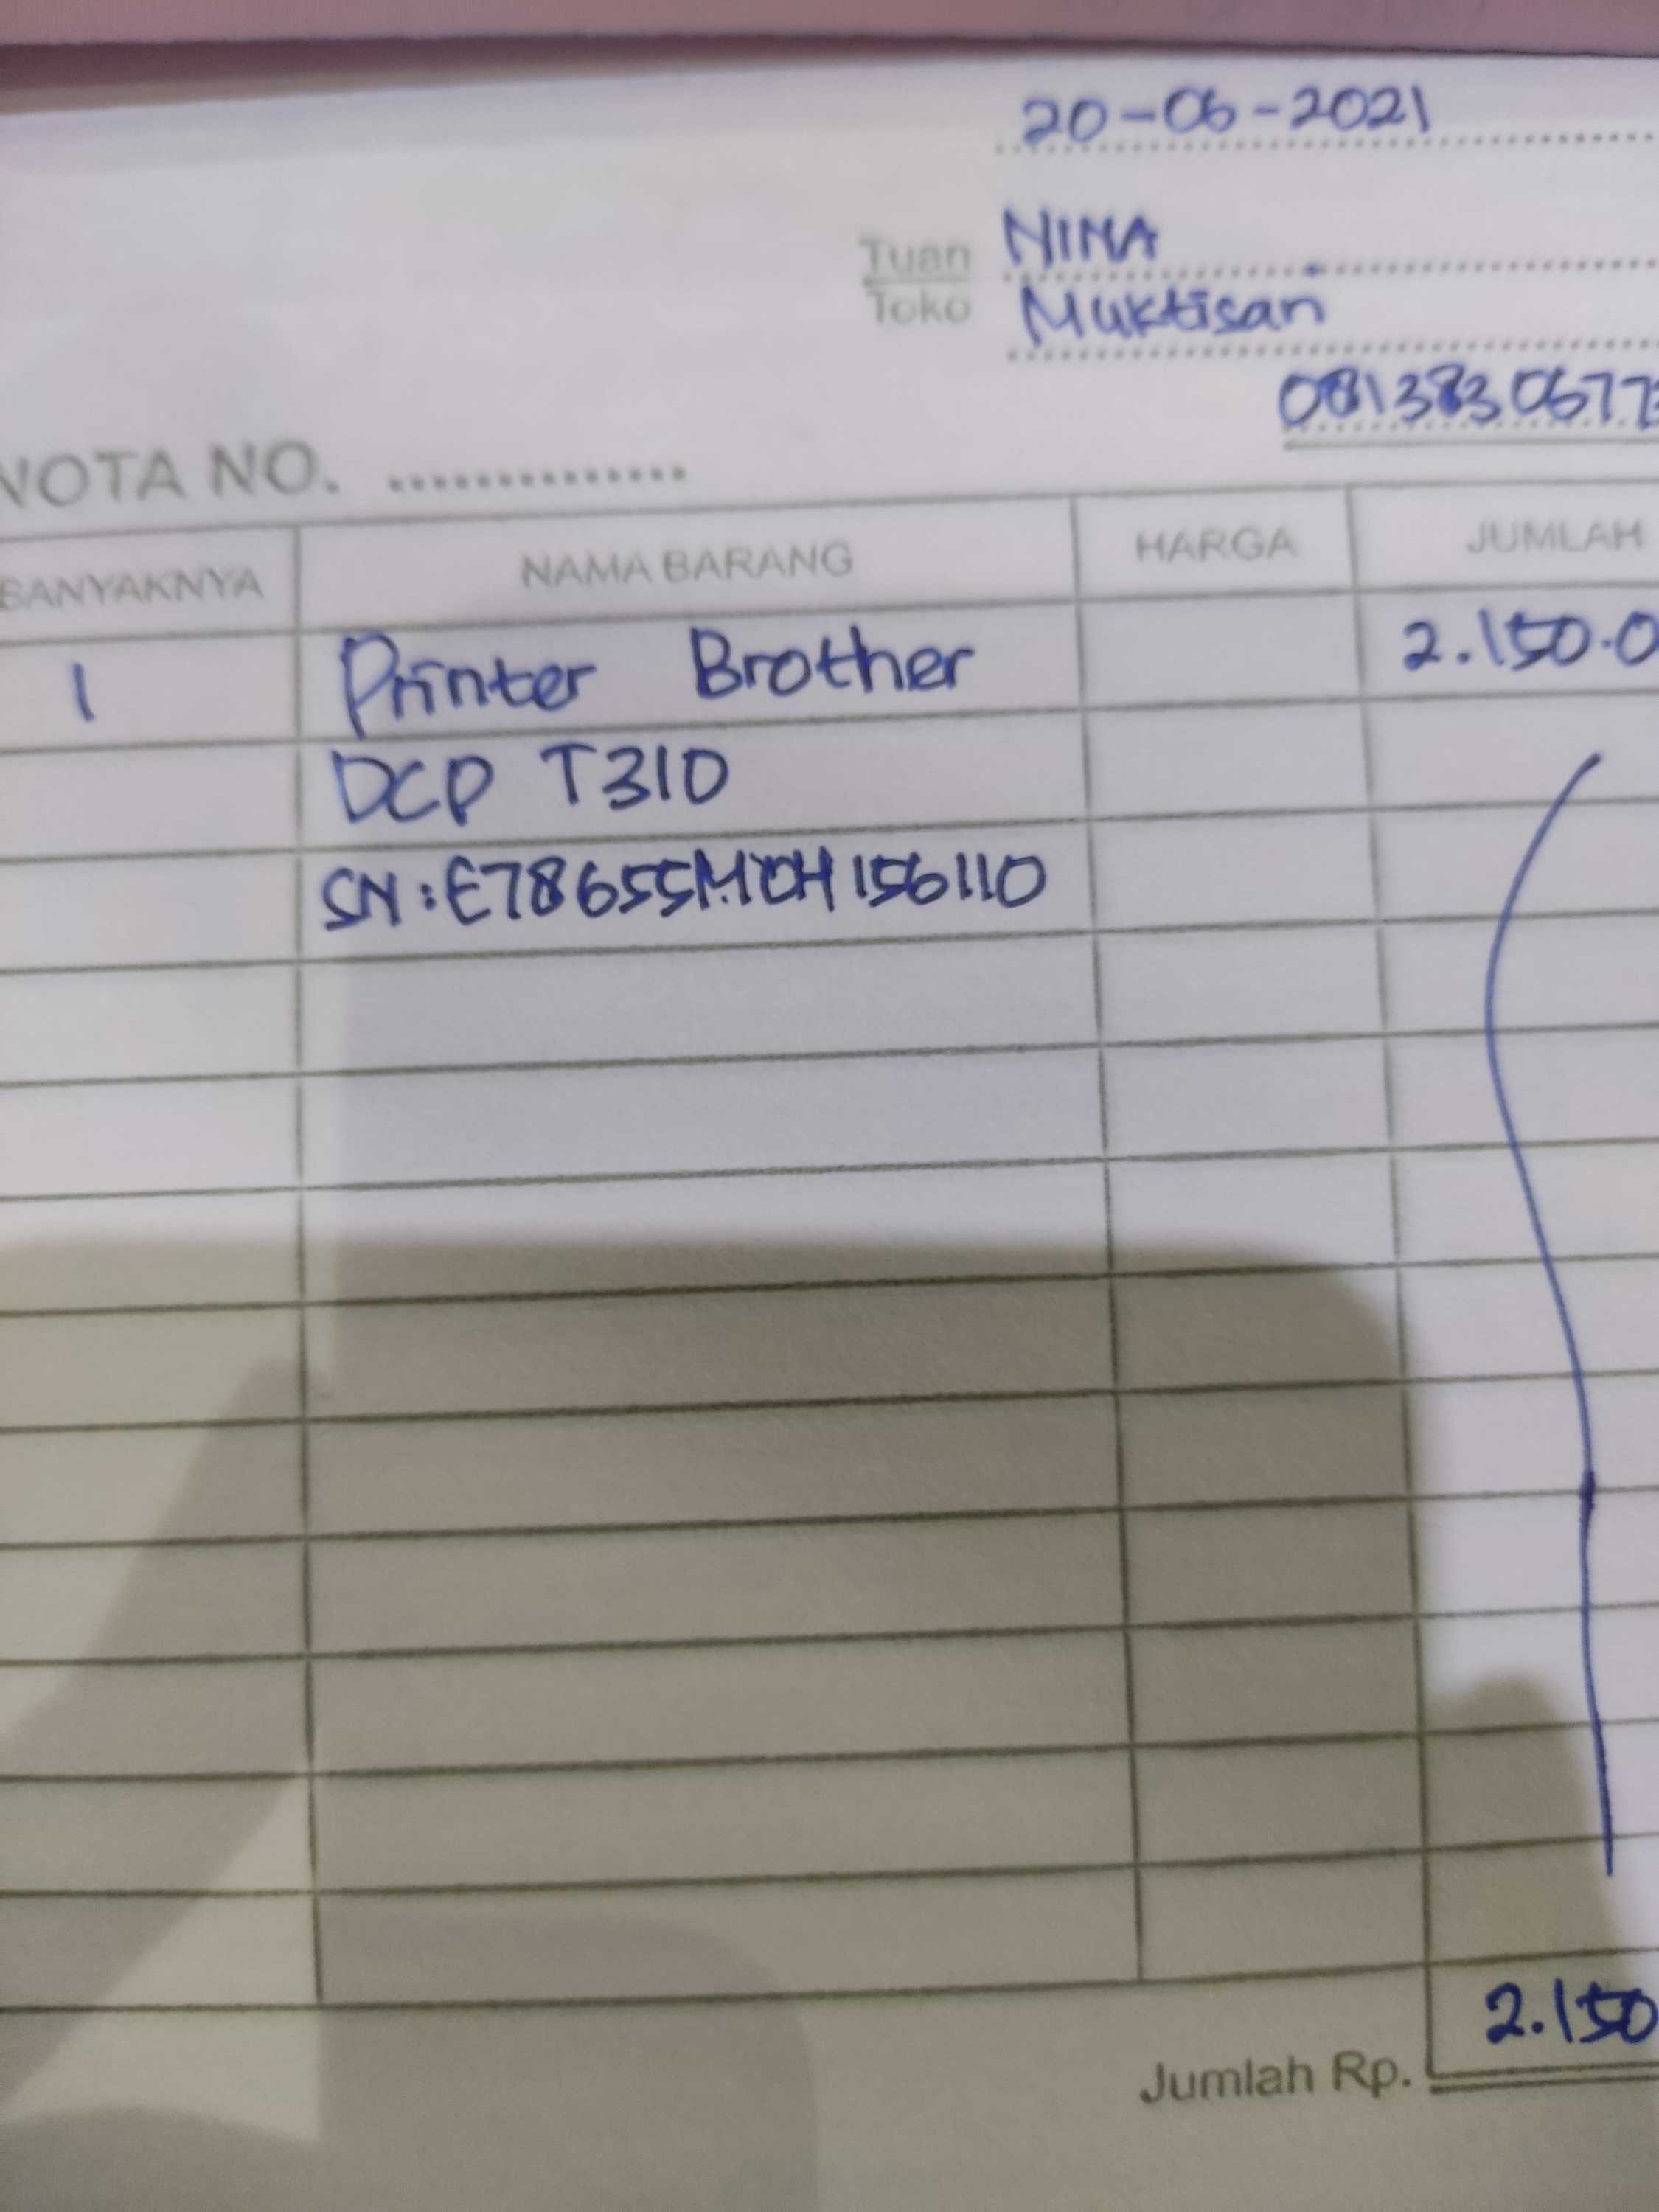 20-06-2021
Tuan NINA
Toko Muktisan
NOTA NO. ..............
BANYAKNYA NAMA BARANG HARGA JUMLAH
1 Printer Brother 2.150.0
DCP T310
Jumlah Rp. 2.150